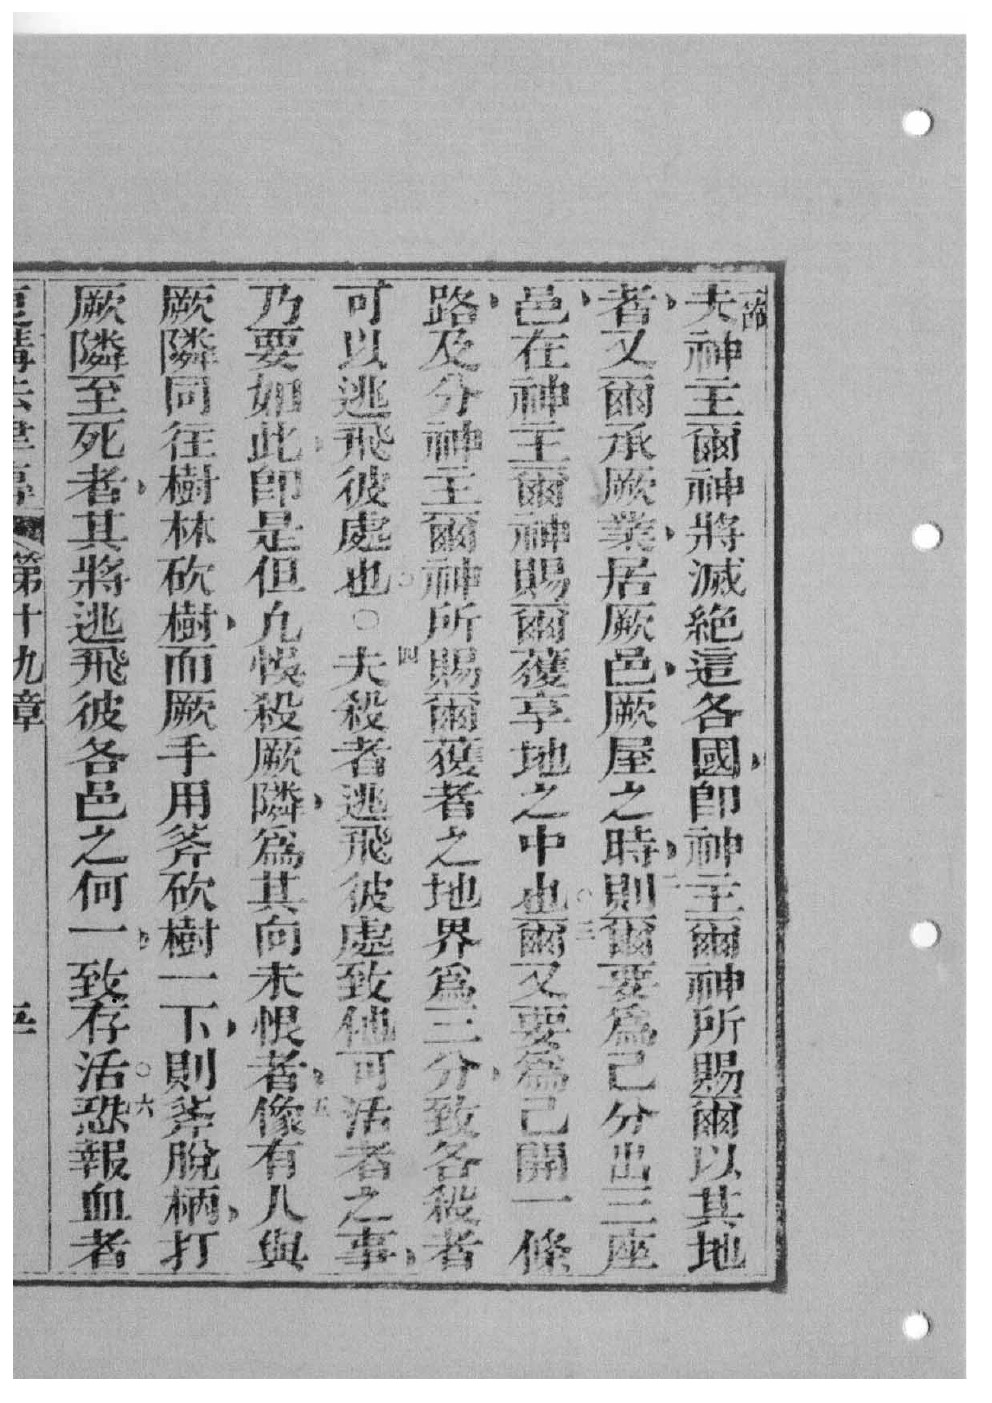 一節
夫神主爾神將滅絕這各國、卽神主爾神所賜爾以其地
者、又爾承厥業、居厥邑、厥屋之時、二則爾要爲己分出三座
邑、在神主爾神賜爾獲享地之中也。三爾又要爲己開一條
路、及分神主爾神所賜爾獲者之地界爲三分、致各殺者
可以逃飛彼處也。○四夫殺者逃飛彼處致他可活者之事、
乃要如此、卽是但凡悞殺厥隣、爲其向未恨者、五像有人與
厥隣同往樹林砍樹、而厥手用斧砍樹一下、則斧脫柄、打
厥隣至死者、其將逃飛彼各邑之何一、致存活。六恐報血者
復講法律傳 第十九章